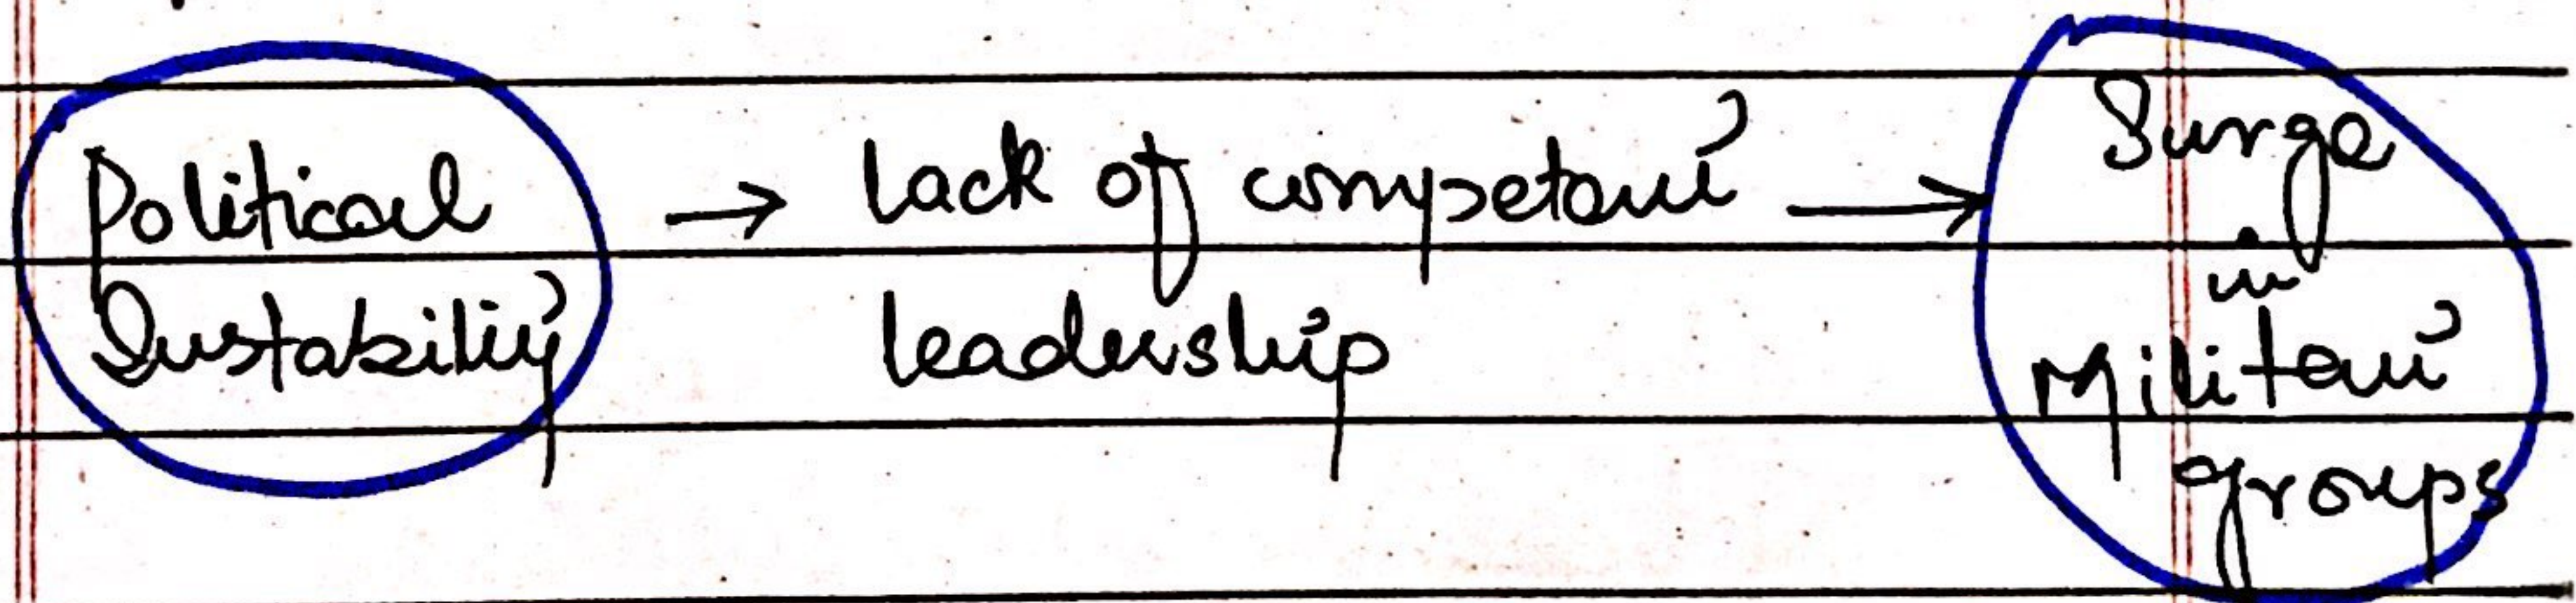 Political
Instability
→ lack of competant →
leadership
Surge
in
Militant
groups